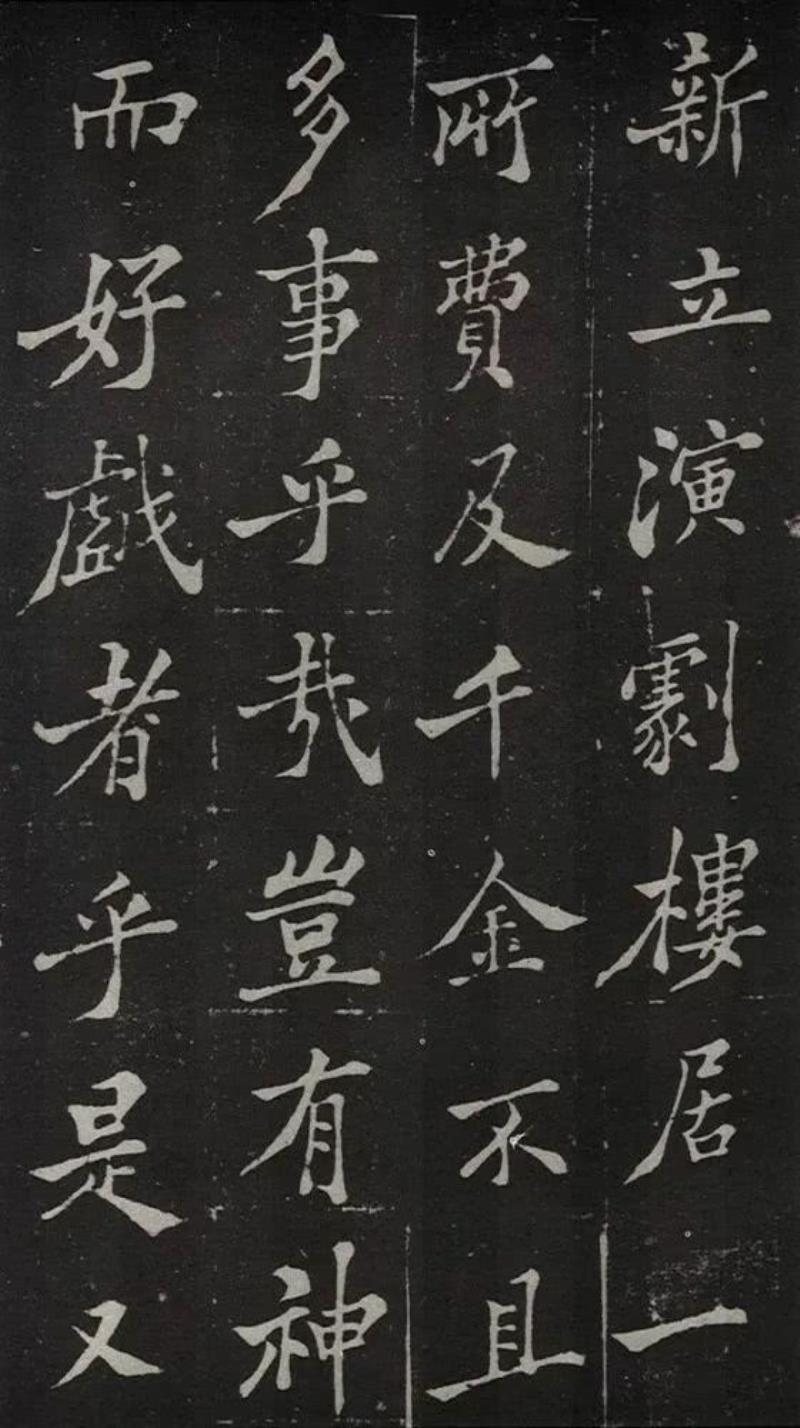 新立演劇樓居一
所費及千金不且
多事乎哉豈有神
而好戲者乎是又